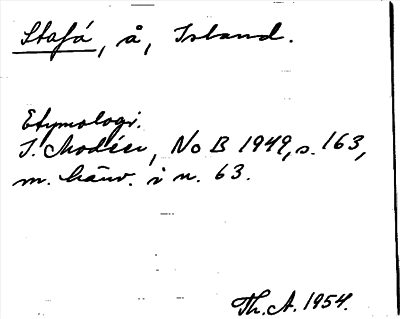 Stafá, å, Island.
Etymologi.
I. Modéer, NoB 1949, s. 163,
m. hänv. i n. 63.
Th. A. 1954.